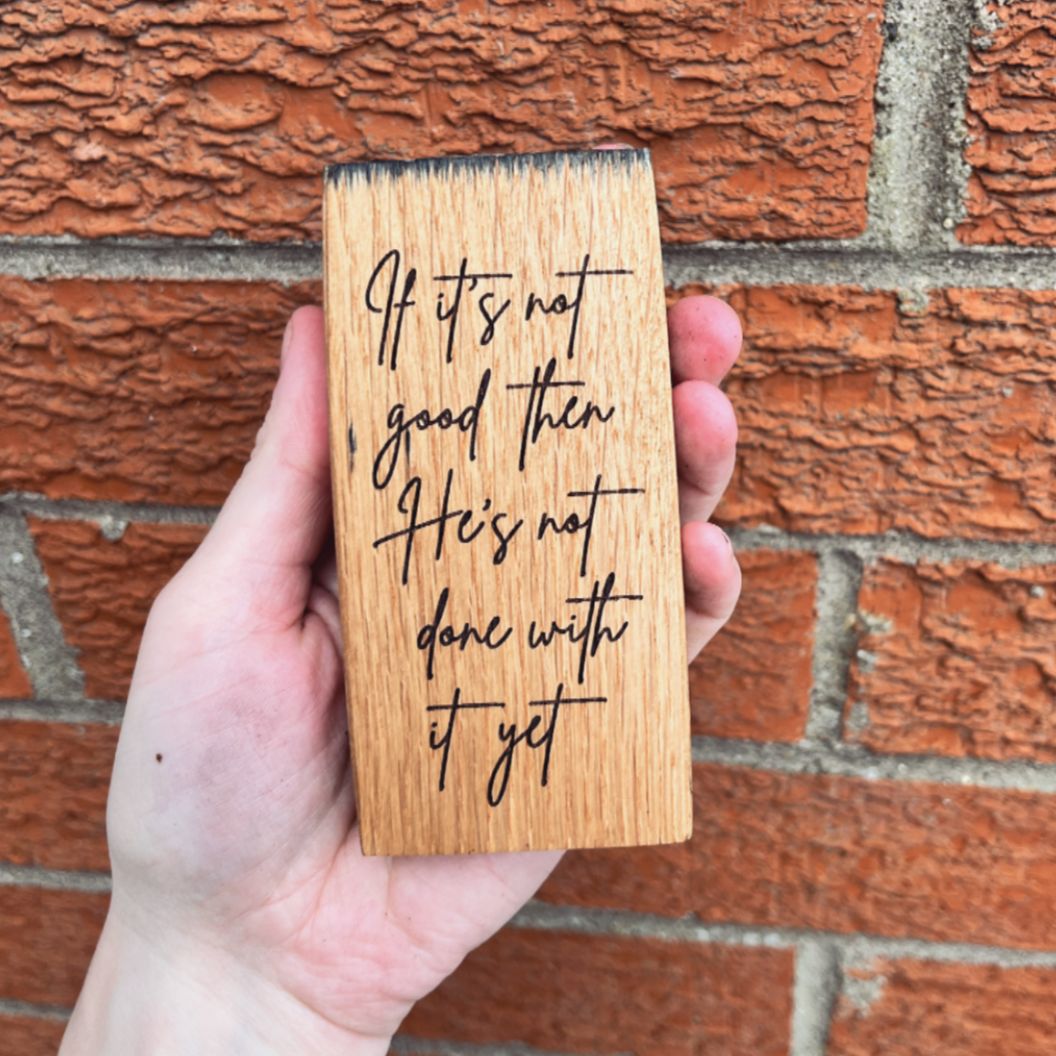 If it's not
good then
He's not
done with
it yet